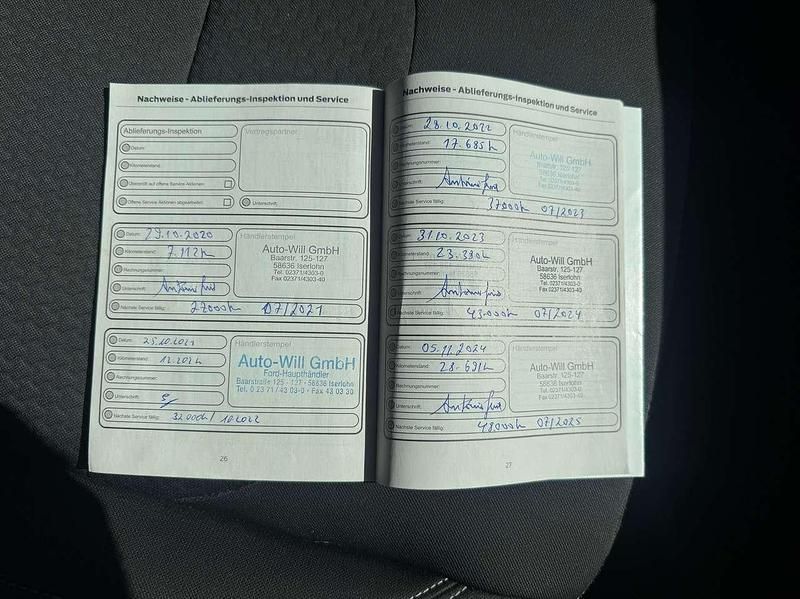 Nachweise - Ablieferungs-Inspektion und Service
Ablieferungs-Inspektion
Datum:
Kilometerstand:
Überprüft auf offene Service Aktionen:
Offene Service Aktionen abgearbeitet:
Vertragspartner
Unterschrift:
Datum: 29.10.2020
Kilometerstand: 7.112k
Rechnungsnummer:
Unterschrift:
Nächste Service fällig: 27000k 07/2021
Händlerstempel
Auto-Will GmbH
Baarstr. 125-127
58636 Iserlohn
Tel. 02371/4303-0
Fax 02371/4303-40
Datum: 25.10.2021
Kilometerstand: 12.202k
Rechnungsnummer:
Unterschrift:
Nächste Service fällig: 32000k / 10 2022
Händlerstempel
Auto-Will GmbH
Ford-Haupthändler
Baarstraße 125 - 127 - 58636 Iserlohn
Tel. 0 23 71 / 43 03-0 · Fax 43 03 30
26
Nachweise - Ablieferungs-Inspektion und Service
Datum: 28.10.2022
Kilometerstand: 17.685k
Rechnungsnummer:
Unterschrift:
Nächste Service fällig: 37000k 07/2023
Händlerstempel
Auto-Will GmbH
Baarstr. 125-127
58636 Iserlohn
Tel. 02371/4303-0
Fax 02371/4303-40
Datum: 31.10.2023
Kilometerstand: 23.380k
Rechnungsnummer:
Unterschrift:
Nächste Service fällig: 43000k 07/2024
Händlerstempel
Auto-Will GmbH
Baarstr. 125-127
58636 Iserlohn
Tel. 02371/4303-0
Fax 02371/4303-40
Datum: 05.11.2024
Kilometerstand: 28.691k
Rechnungsnummer:
Unterschrift:
Nächste Service fällig: 48000k 07/2025
Händlerstempel
Auto-Will GmbH
Baarstr. 125-127
58636 Iserlohn
Tel. 02371/4303-0
Fax 02371/4303-40
27